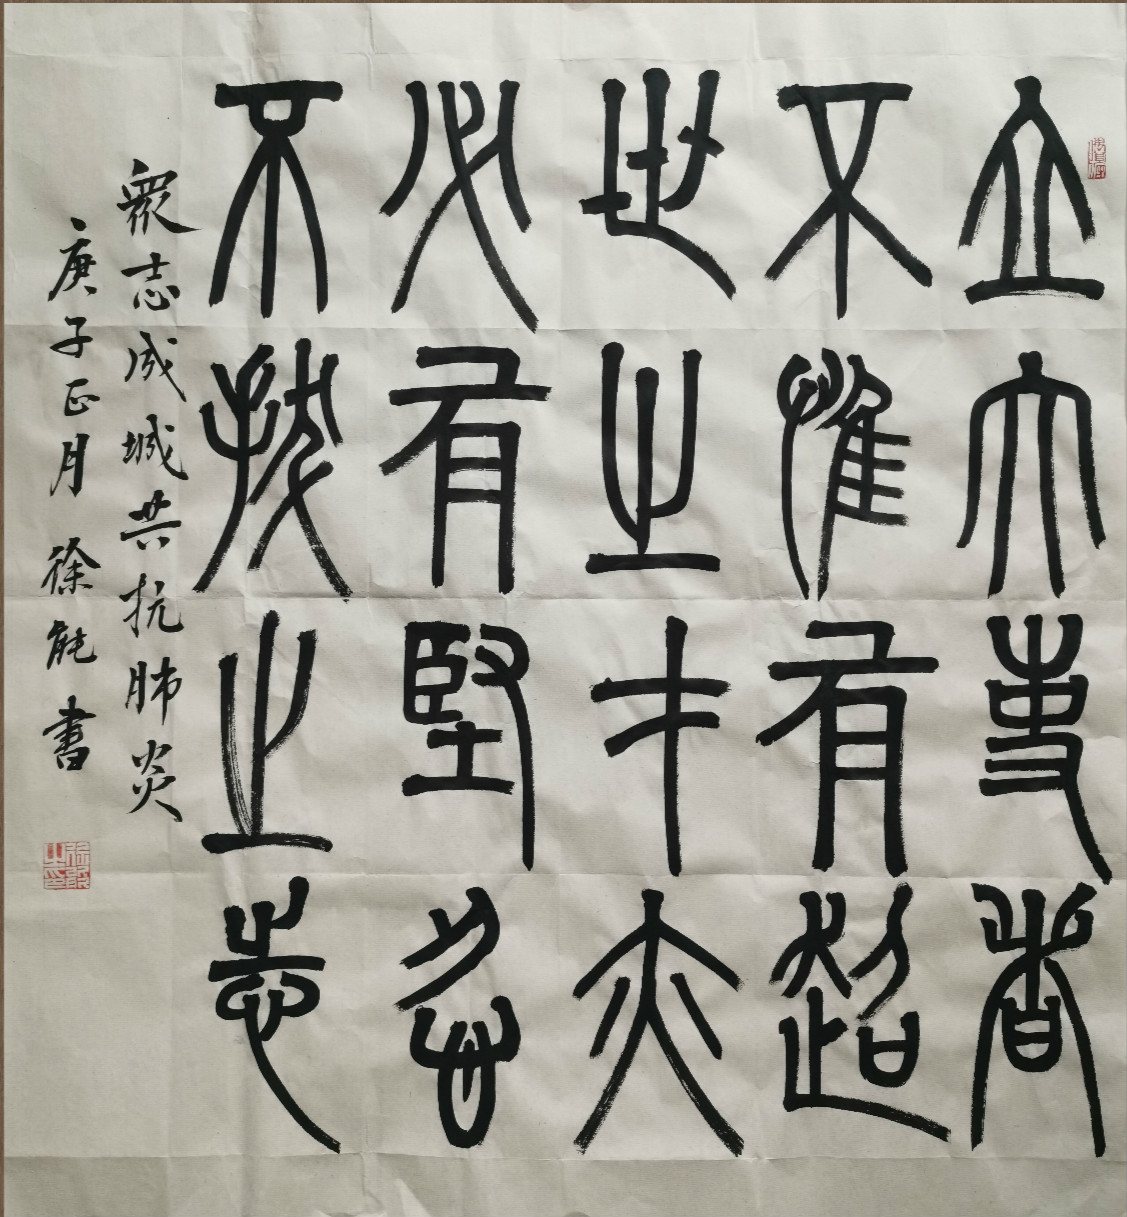 立大事者
不惟有超
世之才亦
必有堅忍
不拔之志
衆志成城共抗肺炎
庚子正月 徐能書